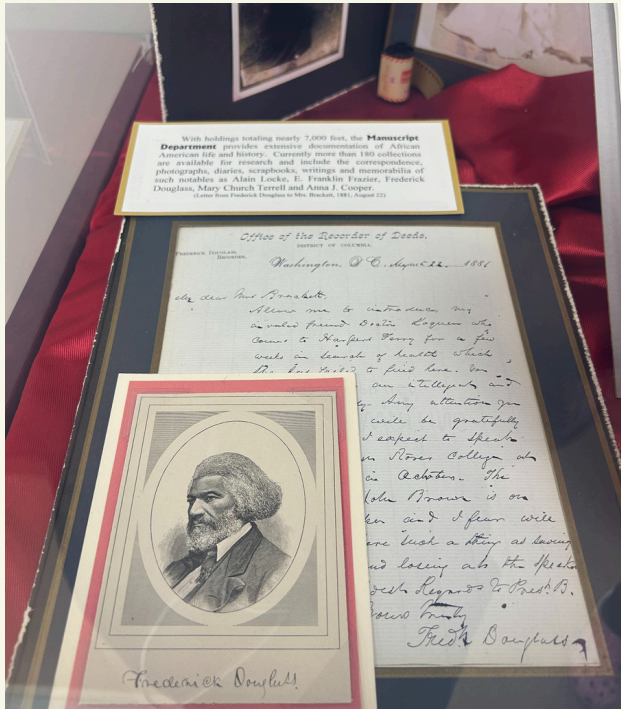 With holdings totaling nearly 7,000 feet, the Manuscript
Department provides extensive documentation of African
American life and history. Currently more than 180 collections
are available for research and include the correspondence,
photographs, diaries, scrapbooks, writings and memorabilia of
such notables as Alain Locke, E. Franklin Frazier, Frederick
Douglass, Mary Church Terrell and Anna J. Cooper.
(Letter from Frederick Douglass to Mrs. Brackett, 1881, August 22)
Office of the Recorder of Deeds,
DISTRICT OF COLUMBIA.
FREDERICK DOUGLASS,
RECORDER.
Washington, D C, August 22 1881
My dear Mrs Brackett.
Allow me to introduce my
invalid friend Doctor Loguen who
comes to Harpers Ferry for a few
weeks in search of health which
she has failed to find here. You
an intelligent and
Any attention you
will be gratefully
I expect to speak
College
in October. The
John Brown is on
and I fear will
such a thing as saving
and losing at the
Best Regards to Prest. B.
Yours Truly
Fredk Douglass
Frederick Douglass